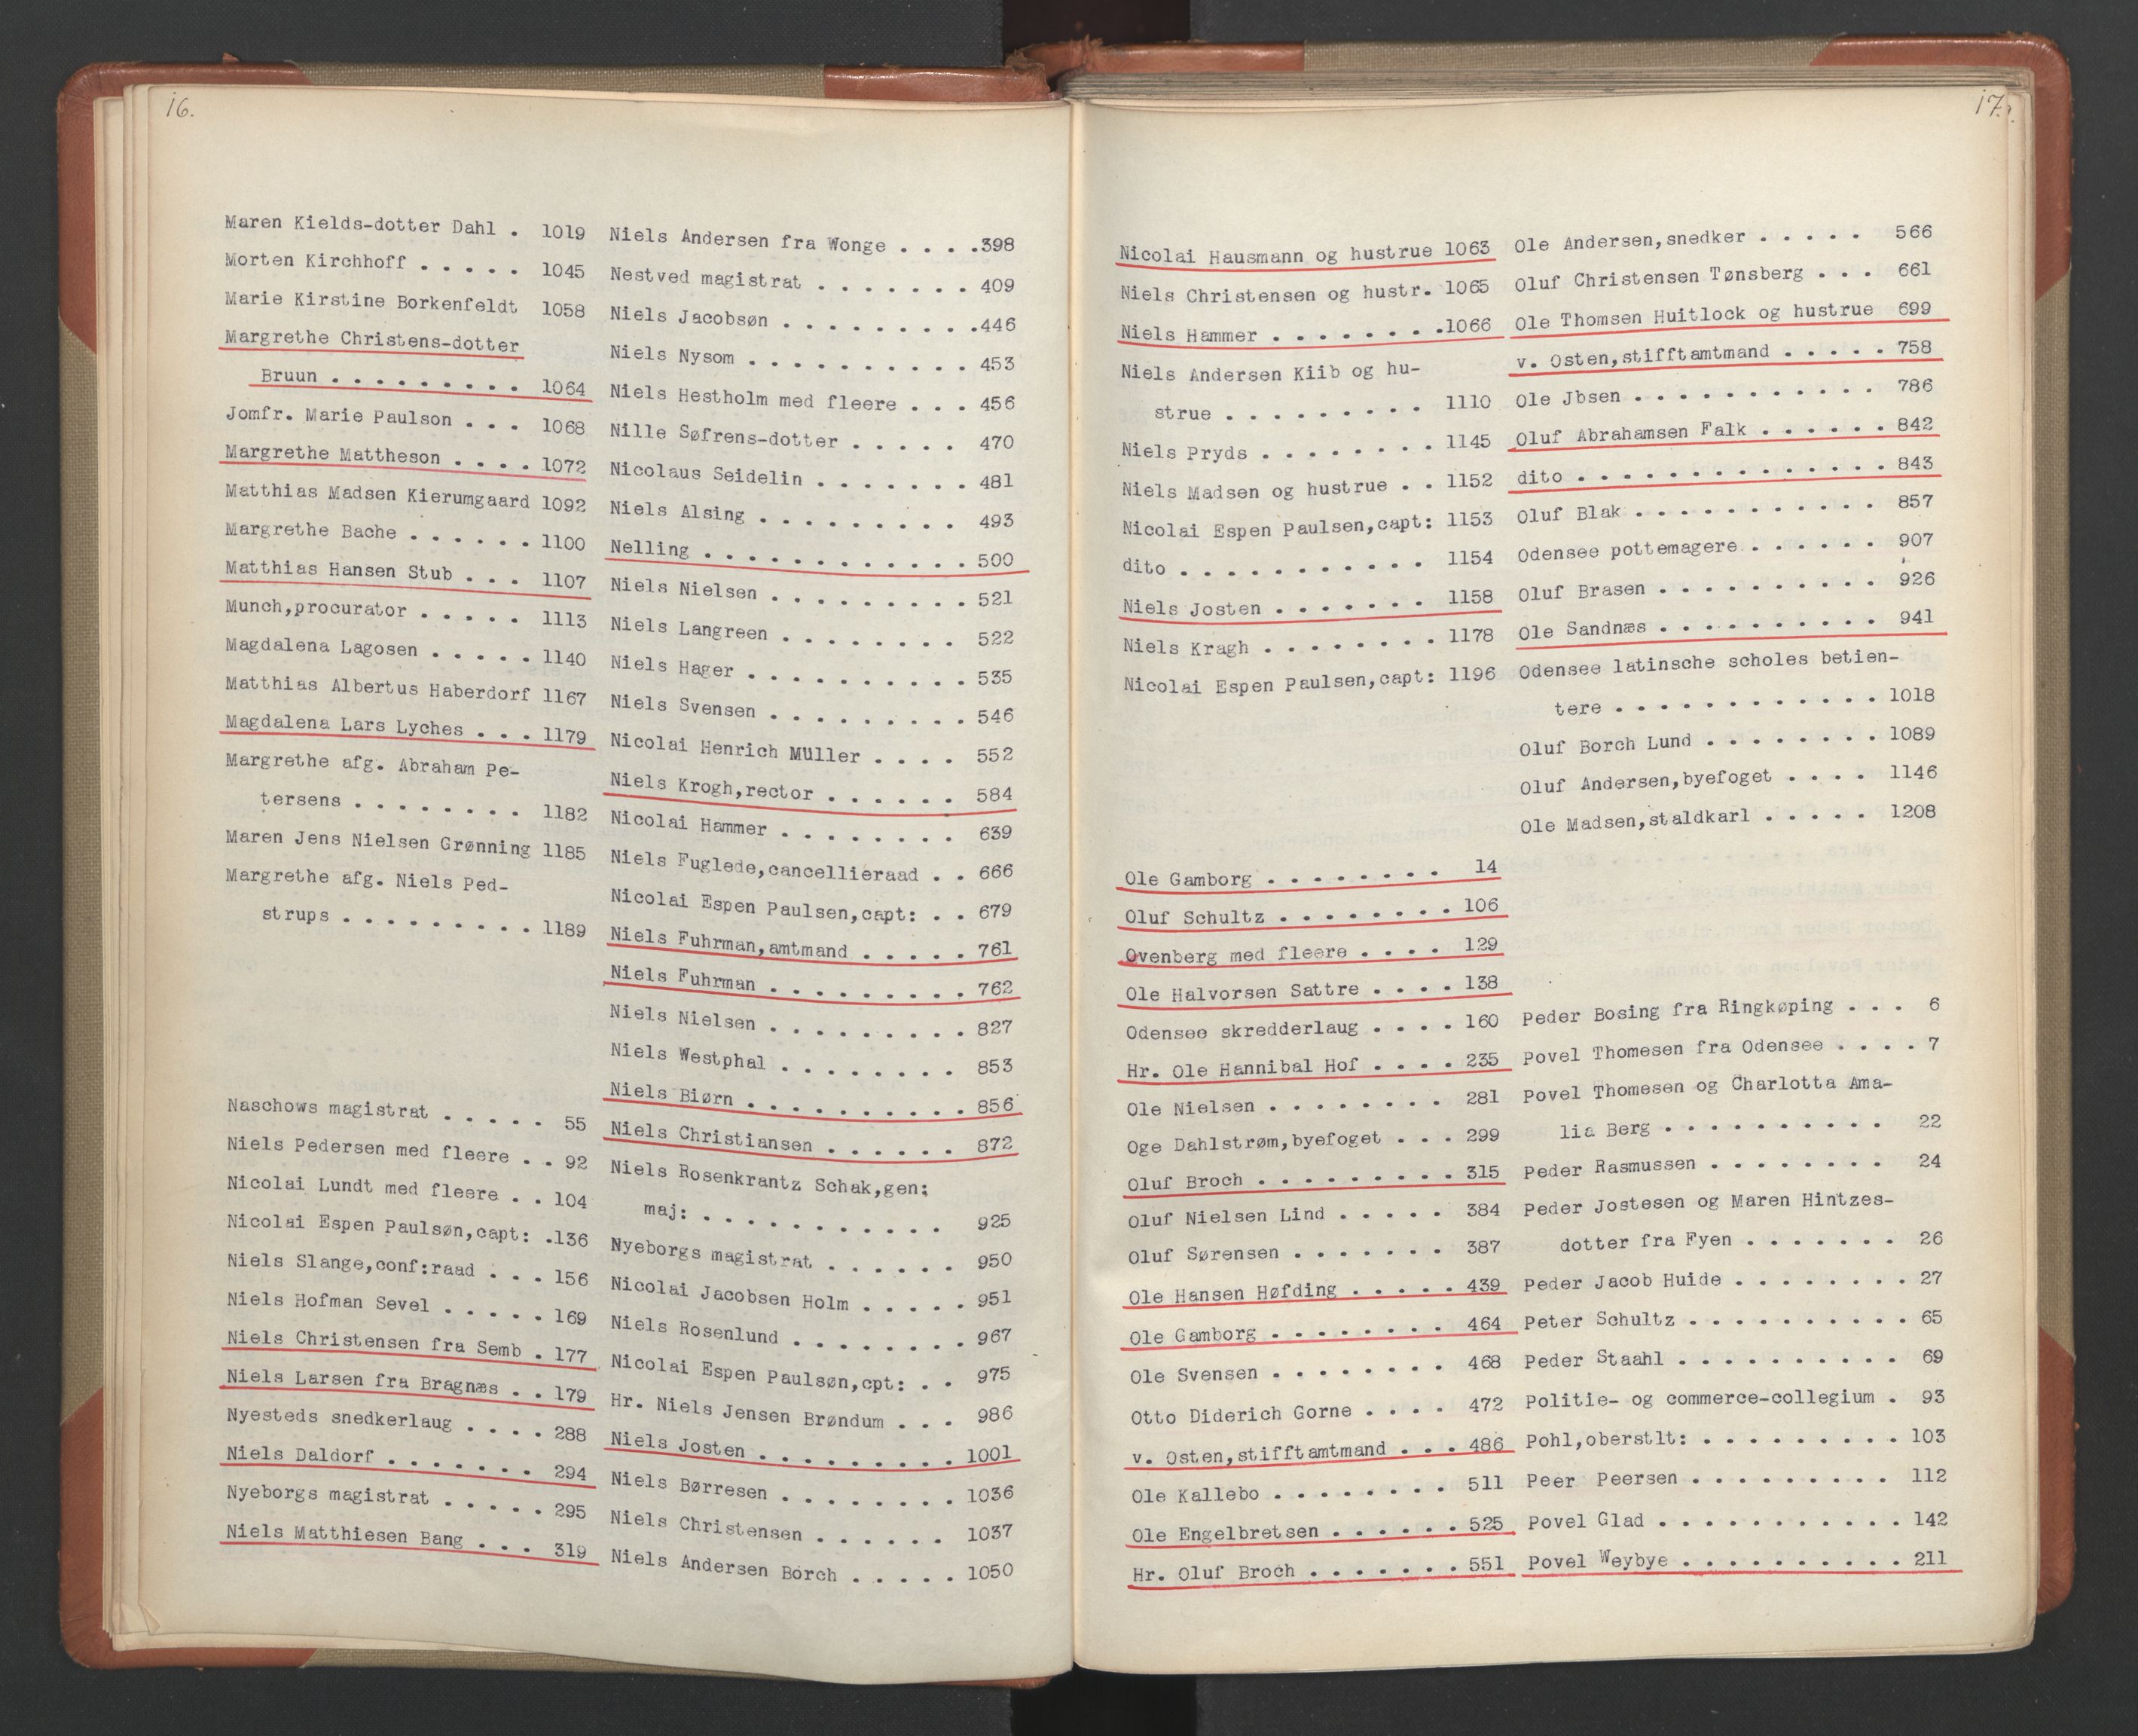 16.
Maren Kields-dotter Dahl . 1019
Morten Kirchhoff . . . . . 1045
Marie Kirstine Borkenfeldt 1058
Margrethe Christens-dotter
Bruun . . . . . . . . . 1064
Jomfr. Marie Paulson . . . 1068
Margrethe Mattheson . . . . 1072
Matthias Madsen Kierumgaard 1092
Margrethe Bache . . . . . . 1100
Matthias Hansen Stub . . . 1107
Munch,procurator . . . . . 1113
Magdalena Lagosen . . . . . 1140
Matthias Albertus Haberdorf 1167
Magdalena Lars Lyches . . . 1179
Margrethe afg. Abraham Pe-
tersens . . . . . . . . 1182
Maren Jens Nielsen Grønning 1185
Margrethe afg. Niels Ped-
strups . . . . . . . . . 1189
Naschows magistrat . . . . . 55
Niels Pedersen med fleere . . 92
Nicolai Lundt med fleere . . 104
Nicolai Espen Paulsøn,capt: .136
Niels Slange,conf:raad . . . 156
Niels Hofman Sevel . . . . . 169
Niels Christensen fra Semb . 177
Niels Larsen fra Bragnæs . . 179
Nyesteds snedkerlaug . . . . 288
Niels Daldorf . . . . . . . 294
Nyeborgs magistrat . . . . . 295
Niels Matthiesen Bang . . . 319
Niels Andersen fra Wonge . . . .398
Nestved magistrat . . . . . . . 409
Niels Jacobsøn . . . . . . . . .446
Niels Nysom . . . . . . . . . . 453
Niels Hestholm med fleere . . . 456
Nille Søfrens-dotter . . . . . 470
Nicolaus Seidelin . . . . . . . 481
Niels Alsing . . . . . . . . . 493
Nelling . . . . . . . . . . . . 500
Niels Nielsen . . . . . . . . . 521
Niels Langreen . . . . . . . . 522
Niels Hager . . . . . . . . . . 535
Niels Svensen . . . . . . . . . 546
Nicolai Henrich Müller . . . . 552
Niels Krogh,rector . . . . . . 584
Nicolai Hammer . . . . . . . . 639
Niels Fuglede,cancellieraad . . 666
Nicolai Espen Paulsen,capt: . . 679
Niels Fuhrman,amtmand . . . . . 761
Niels Fuhrman . . . . . . . . . 762
Niels Nielsen . . . . . . . . . 827
Niels Westphal . . . . . . . . 853
Niels Biørn . . . . . . . . . . 856
Niels Christiansen . . . . . . 872
Niels Rosenkrantz Schak,gen:
maj: . . . . . . . . . . . 925
Nyeborgs magistrat . . . . . . 950
Nicolai Jacobsen Holm . . . . . 951
Niels Rosenlund . . . . . . . . 967
Nicolai Espen Paulsøn,cpt: . . 975
Hr. Niels Jensen Brøndum . . . 986
Niels Josten . . . . . . . . . 1001
Niels Børresen . . . . . . . . 1036
Niels Christensen . . . . . . 1037
Niels Andersen Borch . . . . . 1050
17.
Nicolai Hausmann og hustrue 1063
Niels Christensen og hustr. 1065
Niels Hammer . . . . . . . .1066
Niels Andersen Kiib og hu-
strue . . . . . . . . . 1110
Niels Pryds . . . . . . . . 1145
Niels Madsen og hustrue . . 1152
Nicolai Espen Paulsen,capt: 1153
dito . . . . . . . . . . . 1154
Niels Josten . . . . . . . 1158
Niels Kragh . . . . . . . . 1178
Nicolai Espen Paulsen,capt: 1196
Ole Gamborg . . . . . . . . 14
Oluf Schultz . . . . . . . . 106
Ovenberg med fleere . . . . 129
Ole Halvorsen Sattre . . . . 138
Odensee skredderlaug . . . . 160
Hr. Ole Hannibal Hof . . . . 235
Ole Nielsen . . . . . . . . 281
Oge Dahlstrøm,byefoget . . . 299
Oluf Broch . . . . . . . . . 315
Oluf Nielsen Lind . . . . . 384
Oluf Sørensen . . . . . . . 387
Ole Hansen Høfding . . . . . 439
Ole Gamborg . . . . . . . . 464
Ole Svensen . . . . . . . . 468
Otto Diderich Gorne . . . . 472
v. Osten,stifftamtmand . . . 486
Ole Kallebo . . . . . . . . 511
Ole Engelbretsen . . . . . . 525
Hr. Oluf Broch . . . . . . . 551
Ole Andersen,snedker . . . . . 566
Oluf Christensen Tønsberg . . . 661
Ole Thomsen Huitlock og hustrue 699
v. Osten,stifftamtmand . . . . . 758
Ole Jbsen . . . . . . . . . . . 786
Oluf Abrahamsen Falk . . . . . . 842
dito . . . . . . . . . . . . . . 843
Oluf Blak . . . . . . . . . . . 857
Odensee pottemagere . . . . . . 907
Oluf Brasen . . . . . . . . . . 926
Ole Sandnæs . . . . . . . . . . 941
Odensee latinsche scholes betien-
tere . . . . . . . . . . . . 1018
Oluf Borch Lund . . . . . . . . 1089
Oluf Andersen,byefoget . . . . 1146
Ole Madsen,staldkarl . . . . . 1208
Peder Bosing fra Ringkøping . . . 6
Povel Thomesen fra Odensee . . . . 7
Povel Thomesen og Charlotta Ama-
lia Berg . . . . . . . . . . 22
Peder Rasmussen . . . . . . . . 24
Peder Jostesen og Maren Hintzes-
dotter fra Fyen . . . . . . . 26
Peder Jacob Huide . . . . . . . . 27
Peter Schultz . . . . . . . . . . 65
Peder Staahl . . . . . . . . . . 69
Politie- og commerce-collegium . 93
Pohl,oberstlt: . . . . . . . . . 103
Peer Peersen . . . . . . . . . 112
Povel Glad . . . . . . . . . . . 142
Povel Weybye . . . . . . . . . . 211